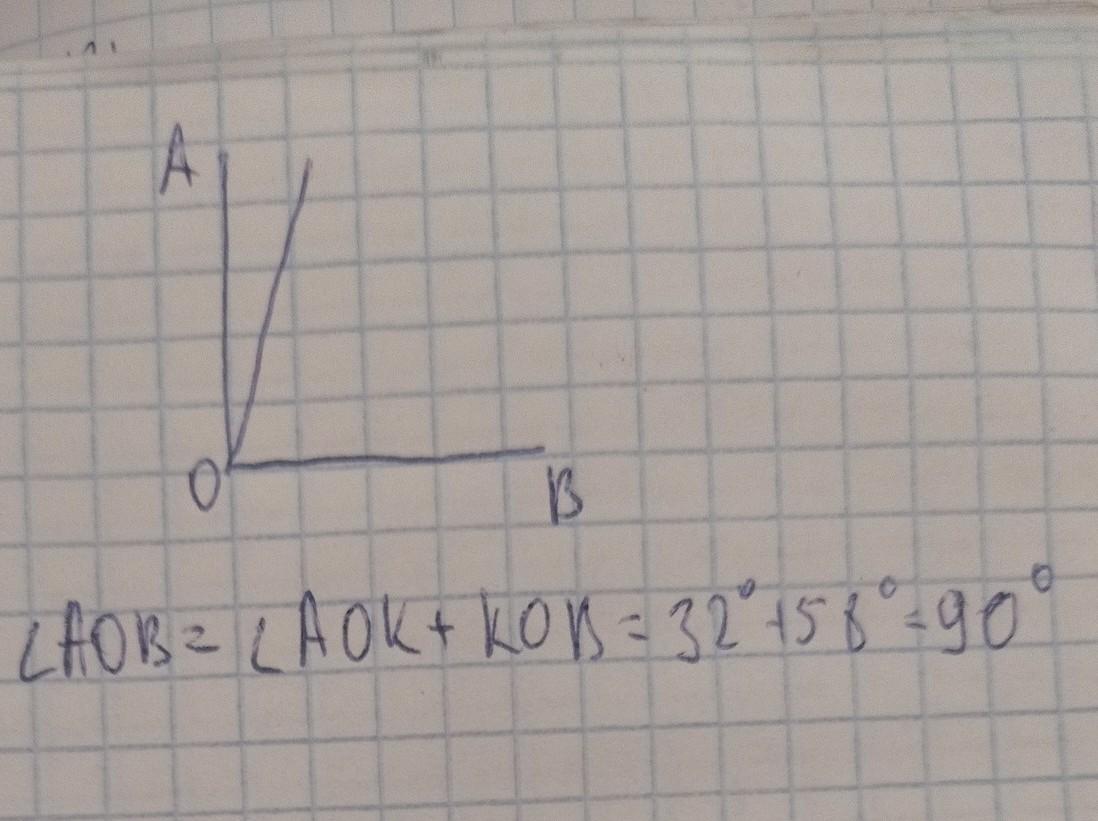 A
O
B
∠AOB = ∠AOK + KOB = 32° + 58° = 90°